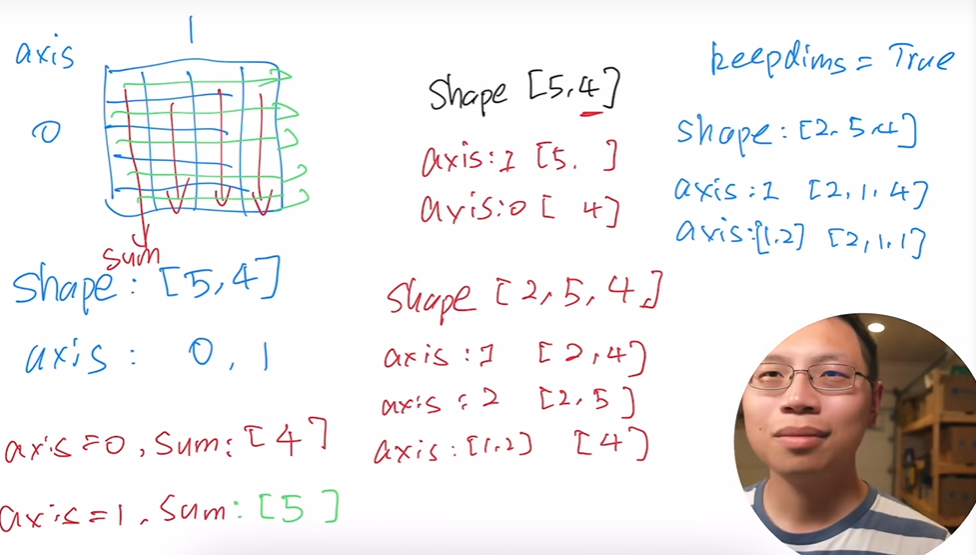 axis 1
0
sum
shape: [5,4]
axis: 0, 1
axis=0, sum: [4]
axis=1, sum: [5]
shape [5,4]
axis:1 [5. ]
axis:0 [ 4]
shape [2,5,4]
axis:1 [2,4]
axis:2 [2,5]
axis:[1,2] [4]
keepdims = True
shape: [2.5.4]
axis:1 [2,1,4]
axis:[1.2] [2,1.1]